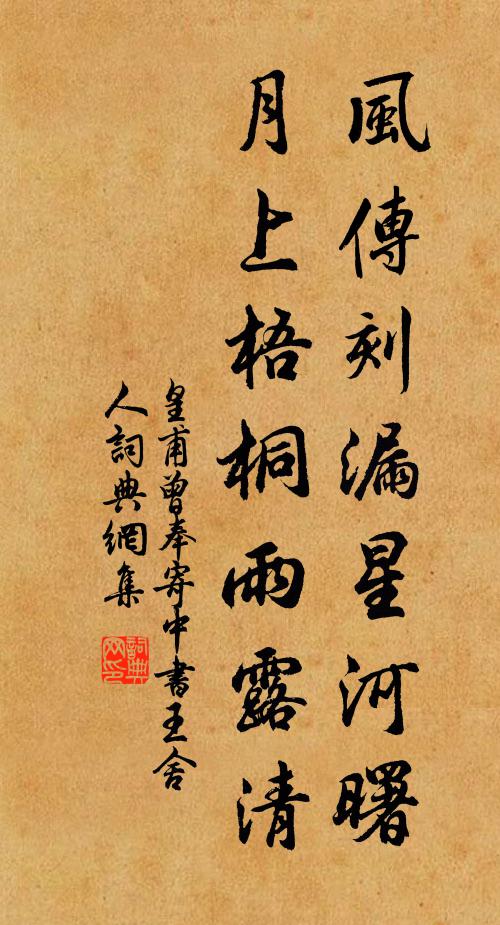 風傳刻漏星河曙
月上梧桐雨露清
皇甫曾奉寄中書王舍
人詞典網集
詞典
网印